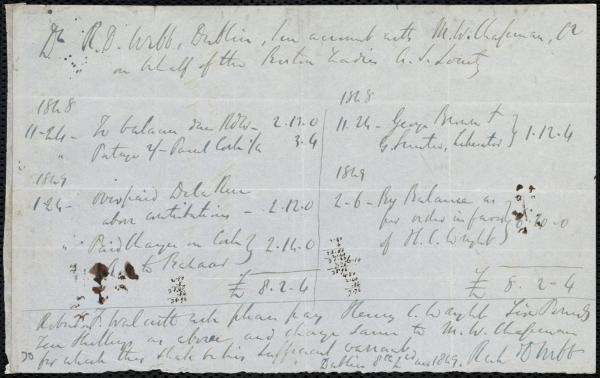 Dr R. D. Webb, Dublin, in account with M. W. Chapman, Cr
on behalf of the Boston Ladies A. S. Society
1848
11-24- To balance due RDW- 2-17-0
" Postage 2/- Parcel Cork 1/4 3-4
1849
1-24- overpaid De la Rue
above contributions - 2.12.0
" Paid Charges on Cork
to Bazaar 2-14-0
£ 8-2-4
1848
11.24- George Brown
Liberator 1-12-4
1849
2-6- By Balance as
per order in favor
of H. C. Wright 6-10-0
£ 8-2-4
Robert F. Walcutt will please pay Henry C. Wright Six Pounds
Ten Shillings as above and charge same to M. W. Chapman
for which this shall be his sufficient warrant
Dublin 8th 1849. Rich D Webb